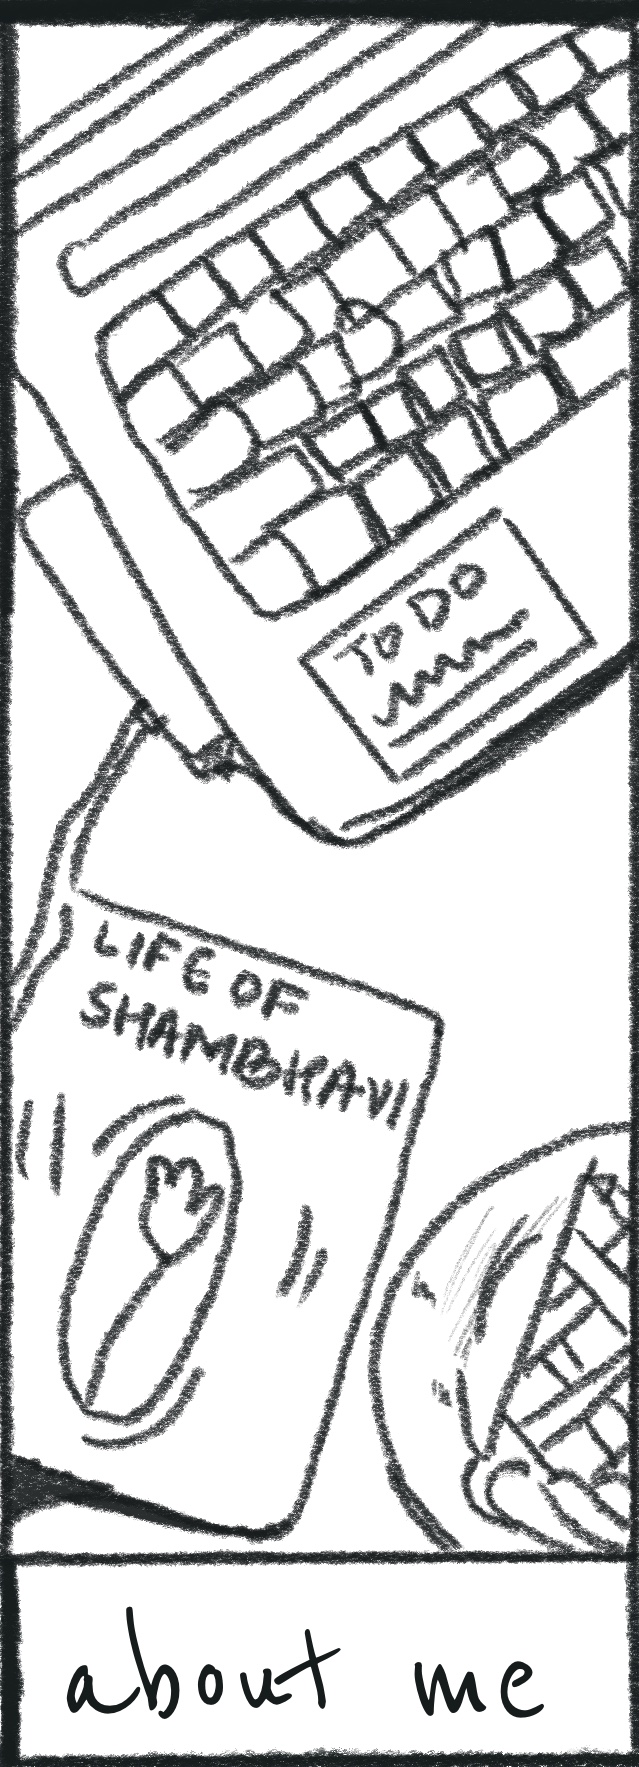 TO DO
LIFE OF
SHAMBHAVI
about me